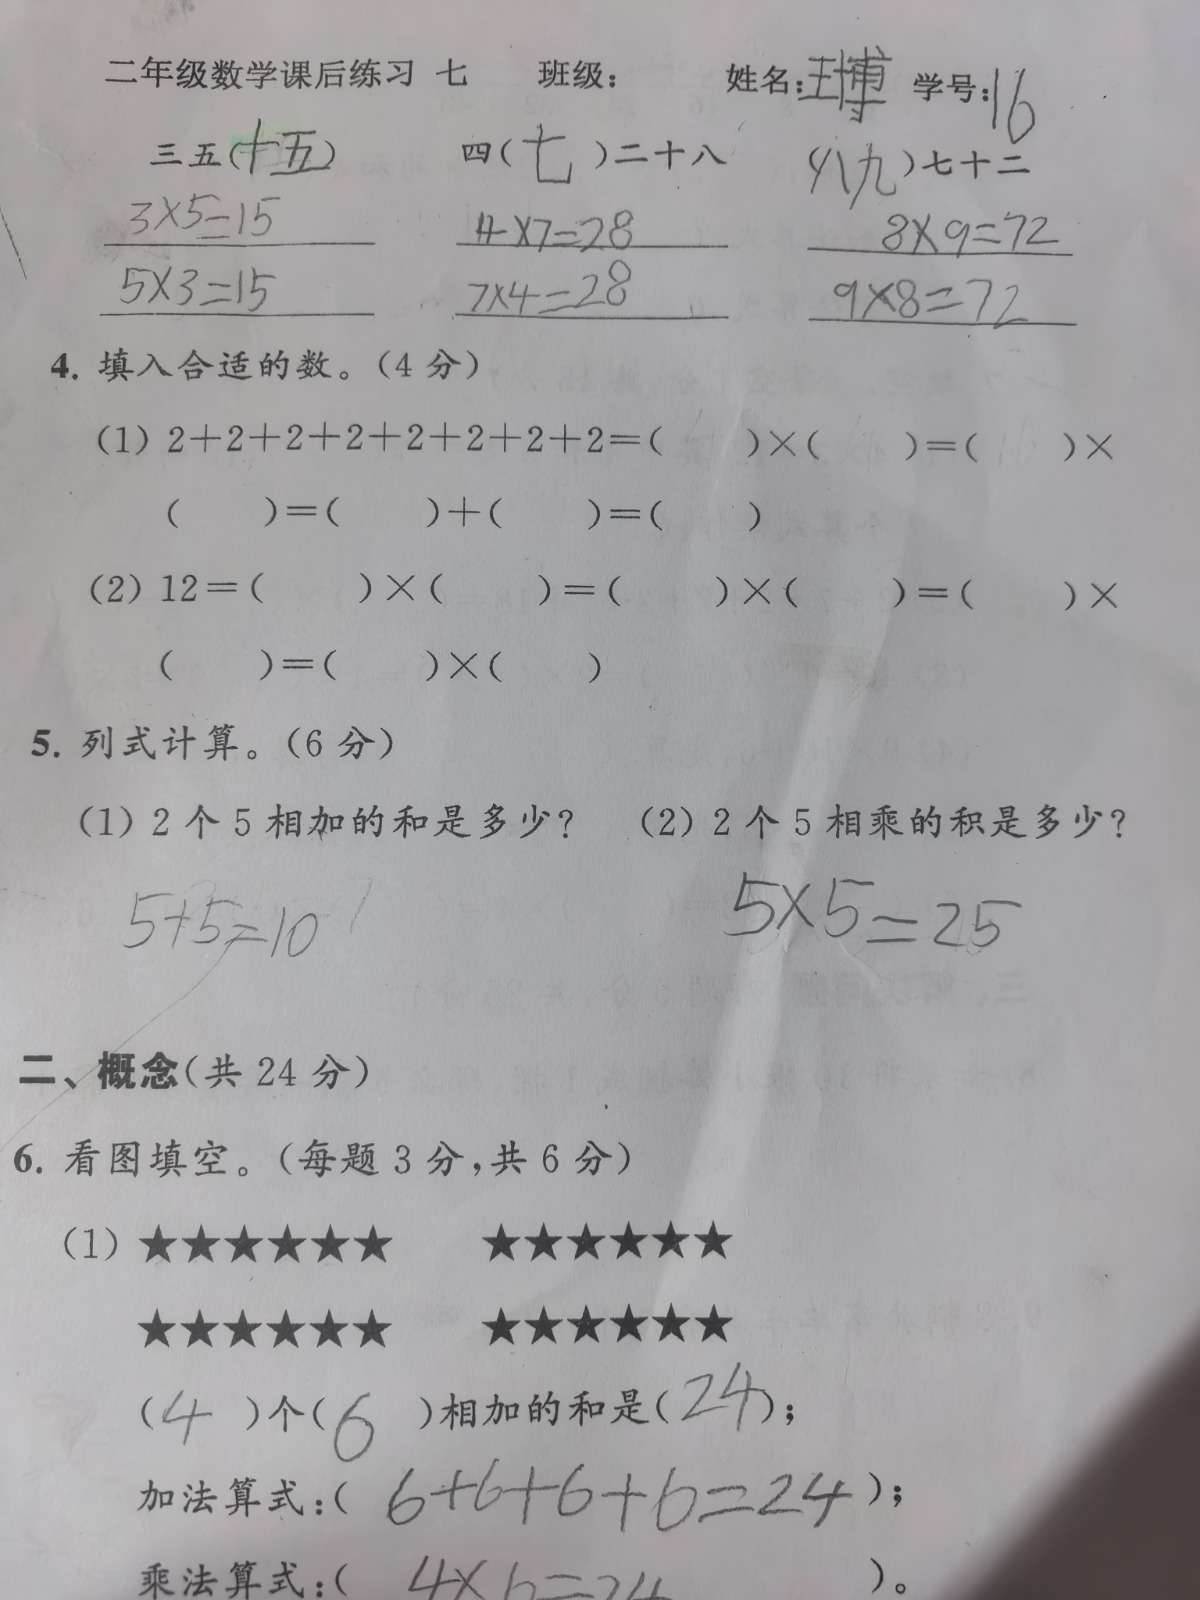 二年级数学课后练习 七 班级： 姓名：王博 学号：16
三五（十五） 四（七）二十八 （八九）七十二
3×5=15 4×7=28 8×9=72
5×3=15 7×4=28 9×8=72
4. 填入合适的数。（4 分）
（1）2＋2＋2＋2＋2＋2＋2＋2＝（ ）×（ ）＝（ ）×
（ ）＝（ ）＋（ ）＝（ ）
（2）12＝（ ）×（ ）＝（ ）×（ ）＝（ ）×
（ ）＝（ ）×（ ）
5. 列式计算。（6 分）
（1）2 个 5 相加的和是多少？ （2）2 个 5 相乘的积是多少？
5+5=10 5×5=25
二、概念（共 24 分）
6. 看图填空。（每题 3 分，共 6 分）
（1）★★★★★★ ★★★★★★
★★★★★★ ★★★★★★
（4）个（6）相加的和是（24）；
加法算式：（6+6+6+6=24）；
乘法算式：（4×6=24）。